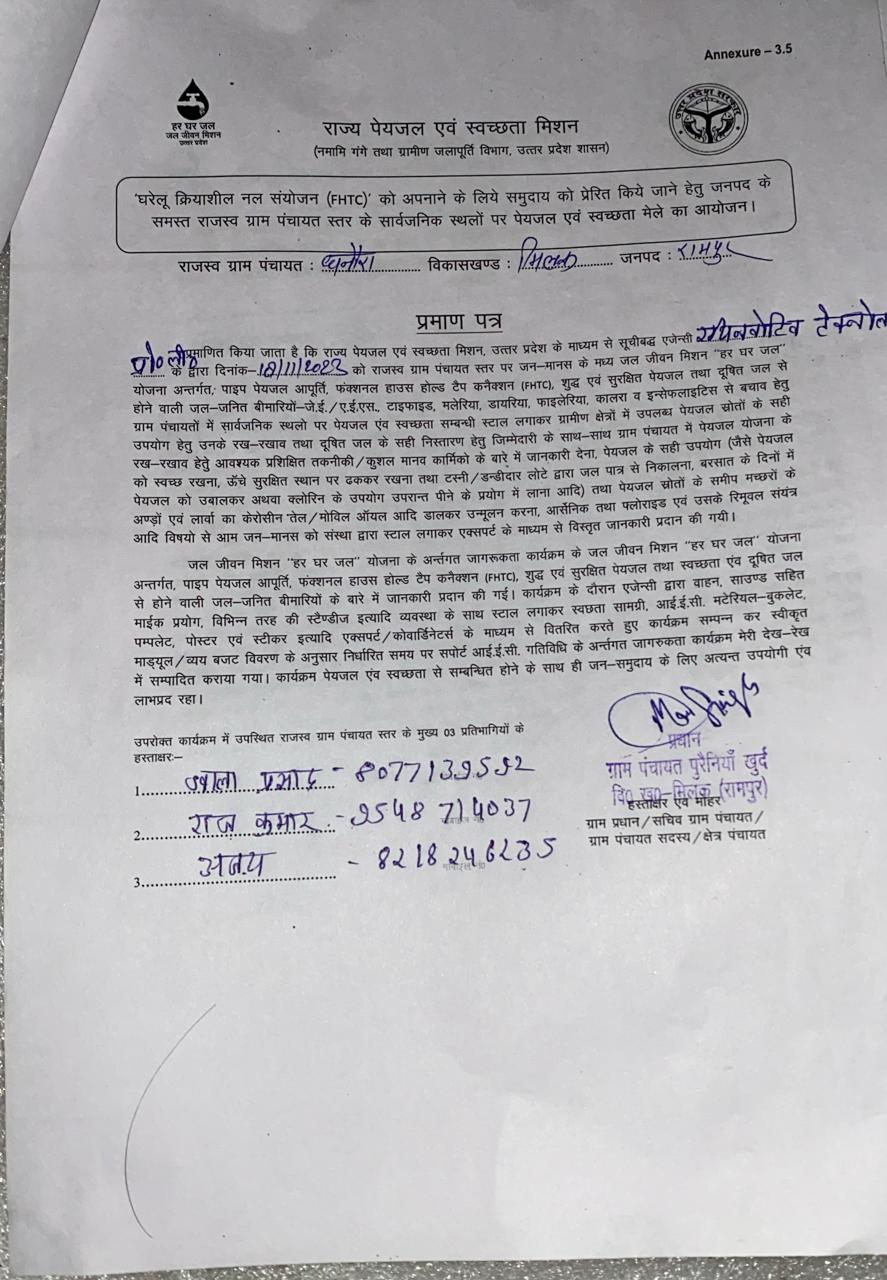 Annexure – 3.5
हर घर जल
जल जीवन मिशन
उत्तर प्रदेश
उत्तर प्रदेश सरकार
राज्य पेयजल एवं स्वच्छता मिशन
(नमामि गंगे तथा ग्रामीण जलापूर्ति विभाग, उत्तर प्रदेश शासन)
'घरेलू क्रियाशील नल संयोजन (FHTC)' को अपनाने के लिये समुदाय को प्रेरित किये जाने हेतु जनपद के
समस्त राजस्व ग्राम पंचायत स्तर के सार्वजनिक स्थलों पर पेयजल एवं स्वच्छता मेले का आयोजन।
राजस्व ग्राम पंचायत : धनौरा विकासखण्ड : मिलक जनपद : रामपुर
प्रमाण पत्र
प्रमाणित किया जाता है कि राज्य पेयजल एवं स्वच्छता मिशन, उत्तर प्रदेश के माध्यम से सूचीबद्ध एजेन्सी टेक्नोल
प्रा० ली० के द्वारा दिनांक- को राजस्व ग्राम पंचायत स्तर पर जन-मानस के मध्य जल जीवन मिशन "हर घर जल"
योजना अन्तर्गत, पाइप पेयजल आपूर्ति, फंक्शनल हाउस होल्ड टैप कनैक्शन (FHTC), शुद्ध एवं सुरक्षित पेयजल तथा दूषित जल से
होने वाली जल-जनित बीमारियों-जे.ई./ए.ई.एस., टाइफाइड, मलेरिया, डायरिया, फाइलेरिया, कालरा व इन्सेफलाइटिस से बचाव हेतु
ग्राम पंचायतों में सार्वजनिक स्थलो पर पेयजल एवं स्वच्छता सम्बन्धी स्टाल लगाकर ग्रामीण क्षेत्रों में उपलब्ध पेयजल स्रोतों के सही
उपयोग हेतु उनके रख-रखाव तथा दूषित जल के सही निस्तारण हेतु जिम्मेदारी के साथ-साथ ग्राम पंचायत में पेयजल योजना के
रख-रखाव हेतु आवश्यक प्रशिक्षित तकनीकी/कुशल मानव कार्मिको के बारे में जानकारी देना, पेयजल के सही उपयोग (जैसे पेयजल
को स्वच्छ रखना, ऊँचे सुरक्षित स्थान पर ढककर रखना तथा टस्नी/डन्डीदार लोटे द्वारा जल पात्र से निकालना, बरसात के दिनों में
पेयजल को उबालकर अथवा क्लोरिन के उपयोग उपरान्त पीने के प्रयोग में लाना आदि) तथा पेयजल स्रोतों के समीप मच्छरों के
अण्ड़ों एवं लार्वा का केरोसीन तेल/मोविल ऑयल आदि डालकर उन्मूलन करना, आर्सेनिक तथा फ्लोराइड एवं उसके रिमूवल संयंत्र
आदि विषयो से आम जन-मानस को संस्था द्वारा स्टाल लगाकर एक्सपर्ट के माध्यम से विस्तृत जानकारी प्रदान की गयी।
जल जीवन मिशन "हर घर जल" योजना के अर्न्तगत जागरूकता कार्यक्रम के जल जीवन मिशन "हर घर जल" योजना
अन्तर्गत, पाइप पेयजल आपूर्ति, फंक्शनल हाउस होल्ड टैप कनैक्शन (FHTC), शुद्ध एवं सुरक्षित पेयजल तथा स्वच्छता एंव दूषित जल
से होने वाली जल-जनित बीमारियों के बारे में जानकारी प्रदान की गई। कार्यक्रम के दौरान एजेन्सी द्वारा वाहन, साउण्ड सहित
माईक प्रयोग, विभिन्न तरह की स्टैण्डीज इत्यादि व्यवस्था के साथ स्टाल लगाकर स्वछता सामग्री, आई.ई.सी. मटेरियल-बुकलेट,
पम्पलेट, पोस्टर एवं स्टीकर इत्यादि एक्सपर्ट/कोवार्डिनेटर्स के माध्यम से वितरित करते हुए कार्यक्रम सम्पन्न कर स्वीकृत
माड्यूल/व्यय बजट विवरण के अनुसार निर्धारित समय पर सपोर्ट आई.ई.सी. गतिविधि के अर्न्तगत जागरुकता कार्यक्रम मेरी देख-रेख
में सम्पादित कराया गया। कार्यक्रम पेयजल एंव स्वच्छता से सम्बन्धित होने के साथ ही जन-समुदाय के लिए अत्यन्त उपयोगी एंव
लाभप्रद रहा।
उपरोक्त कार्यक्रम में उपस्थित राजस्व ग्राम पंचायत स्तर के मुख्य 03 प्रतिभागियों के
हस्ताक्षरः–
1. ज्वाला प्रसाद - 8077139592
2. राज कुमार - 9548714037
3. अजय - 8218246235
प्रधान
ग्राम पंचायत पुरैनियाँ खुर्द
वि० ख०-मिलक (रामपुर)
हस्ताक्षर एवं मोहर
ग्राम प्रधान/सचिव ग्राम पंचायत/
ग्राम पंचायत सदस्य/क्षेत्र पंचायत